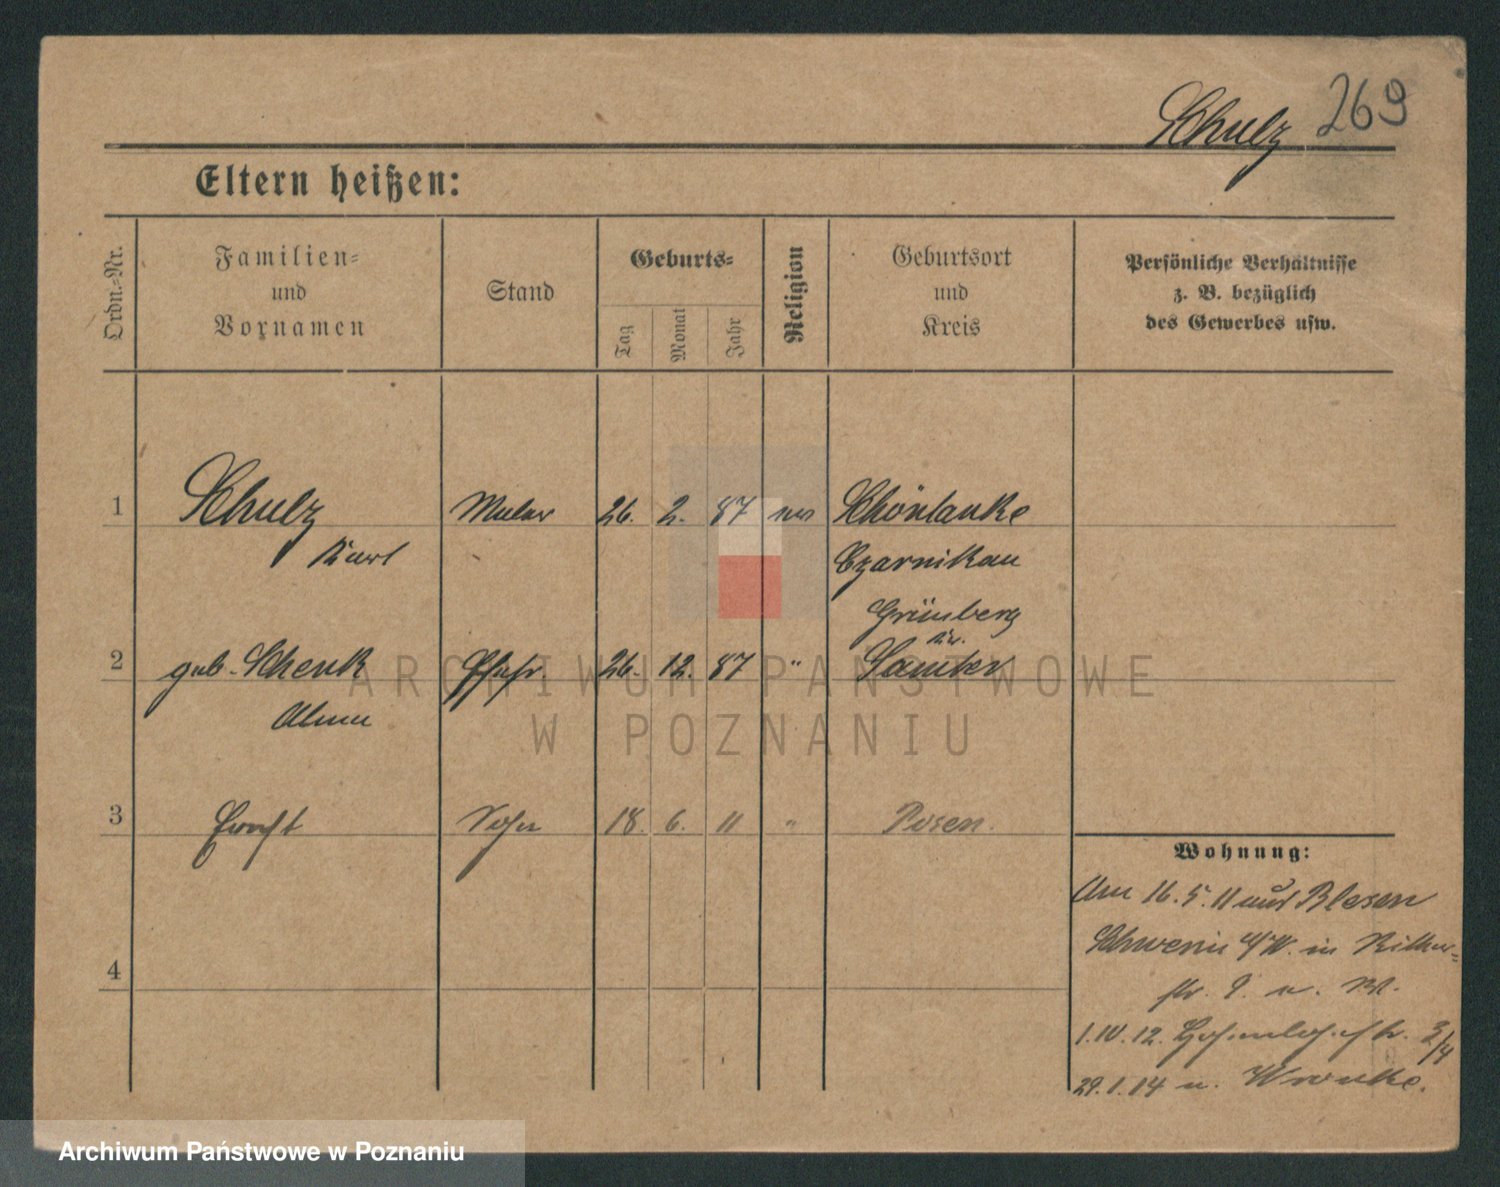 Schulz 269
Eltern heißen:
Ordn.-Nr.
Familien-
und
Vornamen
Stand
Geburts-
Tag
Monat
Jahr
Religion
Geburtsort
und
Kreis
Persönliche Verhältnisse
z. B. bezüglich
des Gewerbes usw.
1 Schulz Maler 26. 2. 87 Schönlanke
Karl Czarnikau
Grünberg
Kr.
2 geb. Schenk Ehefr. 26. 12. 87 " Samter
Alma
3 Ernst Sohn 18. 6. 11 " Posen.
4
Wohnung:
Am 16. 5. 11 aus Blesen
Schwerin a/W. in Ritter-
str. 9. u. W.
1. IV. 12. Hohenlohestr. 3/4
29. 1. 14 n. Wronke.
ARCHIWUM PAŃSTWOWE
W POZNANIU
Archiwum Państwowe w Poznaniu